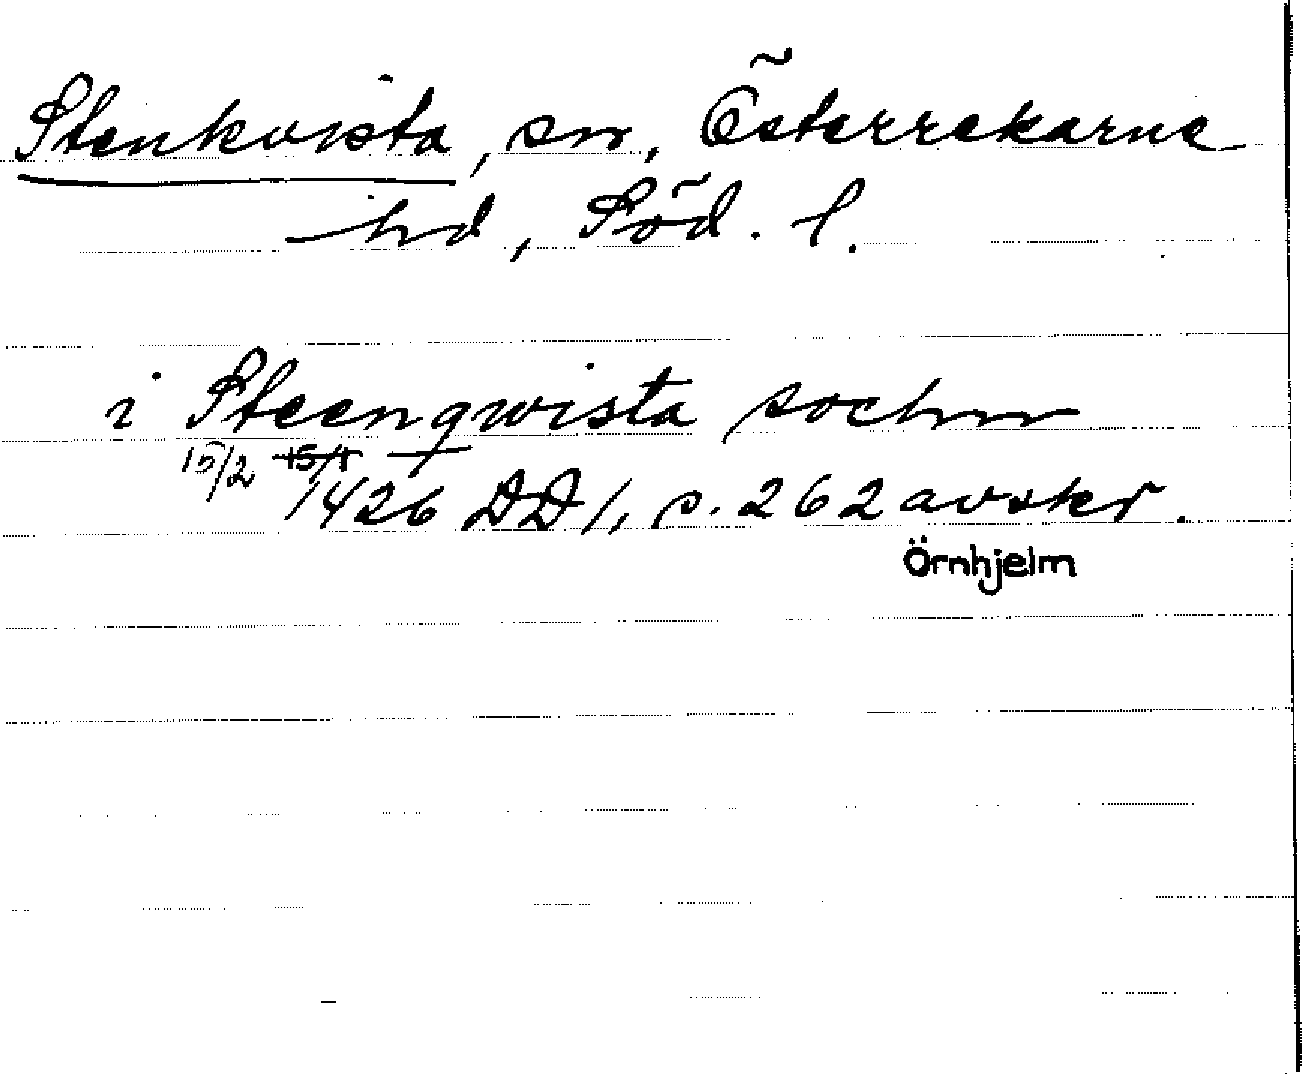 Stenkvista, sn, Österrekarne
hd, Söd. l.
i Steenqwista sochn
15/2 15/1
1426 DD 1, s. 262 avskr.
Örnhjelm